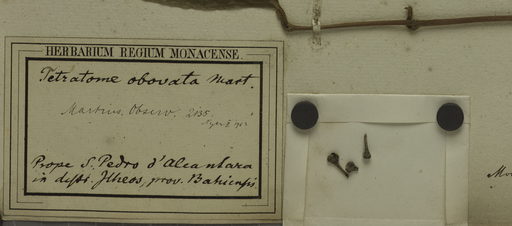 HERBARIUM REGIUM MONACENSE.
Tetratome obovata Mart.
Martius, Observ. 2135.
Prope S. Pedro d'Alcantara
in distr. Ilheos, prov. Bahiensis